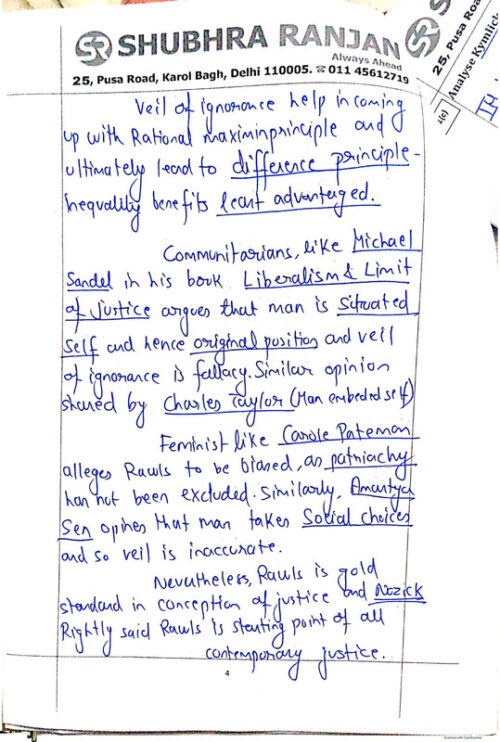 SHUBHRA RANJAN
Always Ahead
25, Pusa Road, Karol Bagh, Delhi 110005. ☎ 011 45612719
25, Pusa Roa
Analyse Kymlick
Veil of ignorance help in coming
up with Rational maximin principle and
ultimately lead to difference principle -
Inequality benefits least advantaged.
Communitarians, like Michael
Sandel in his book Liberalism & Limit
of justice argues that man is situated
self and hence original position and veil
of ignorance is fallacy. Similar opinion
shared by Charles Taylor (Man embeded self)
Feminist like Carole Pateman
alleges Rawls to be biased, as patriachy
has not been excluded. Similarly, Amartya
Sen opines that man takes Social choices
and so veil is inaccurate.
Nevertheless, Rawls is gold
standard in conception of justice and Nozick
Rightly said Rawls is starting point of all
contemporary justice.
4
Scanned with CamScanner